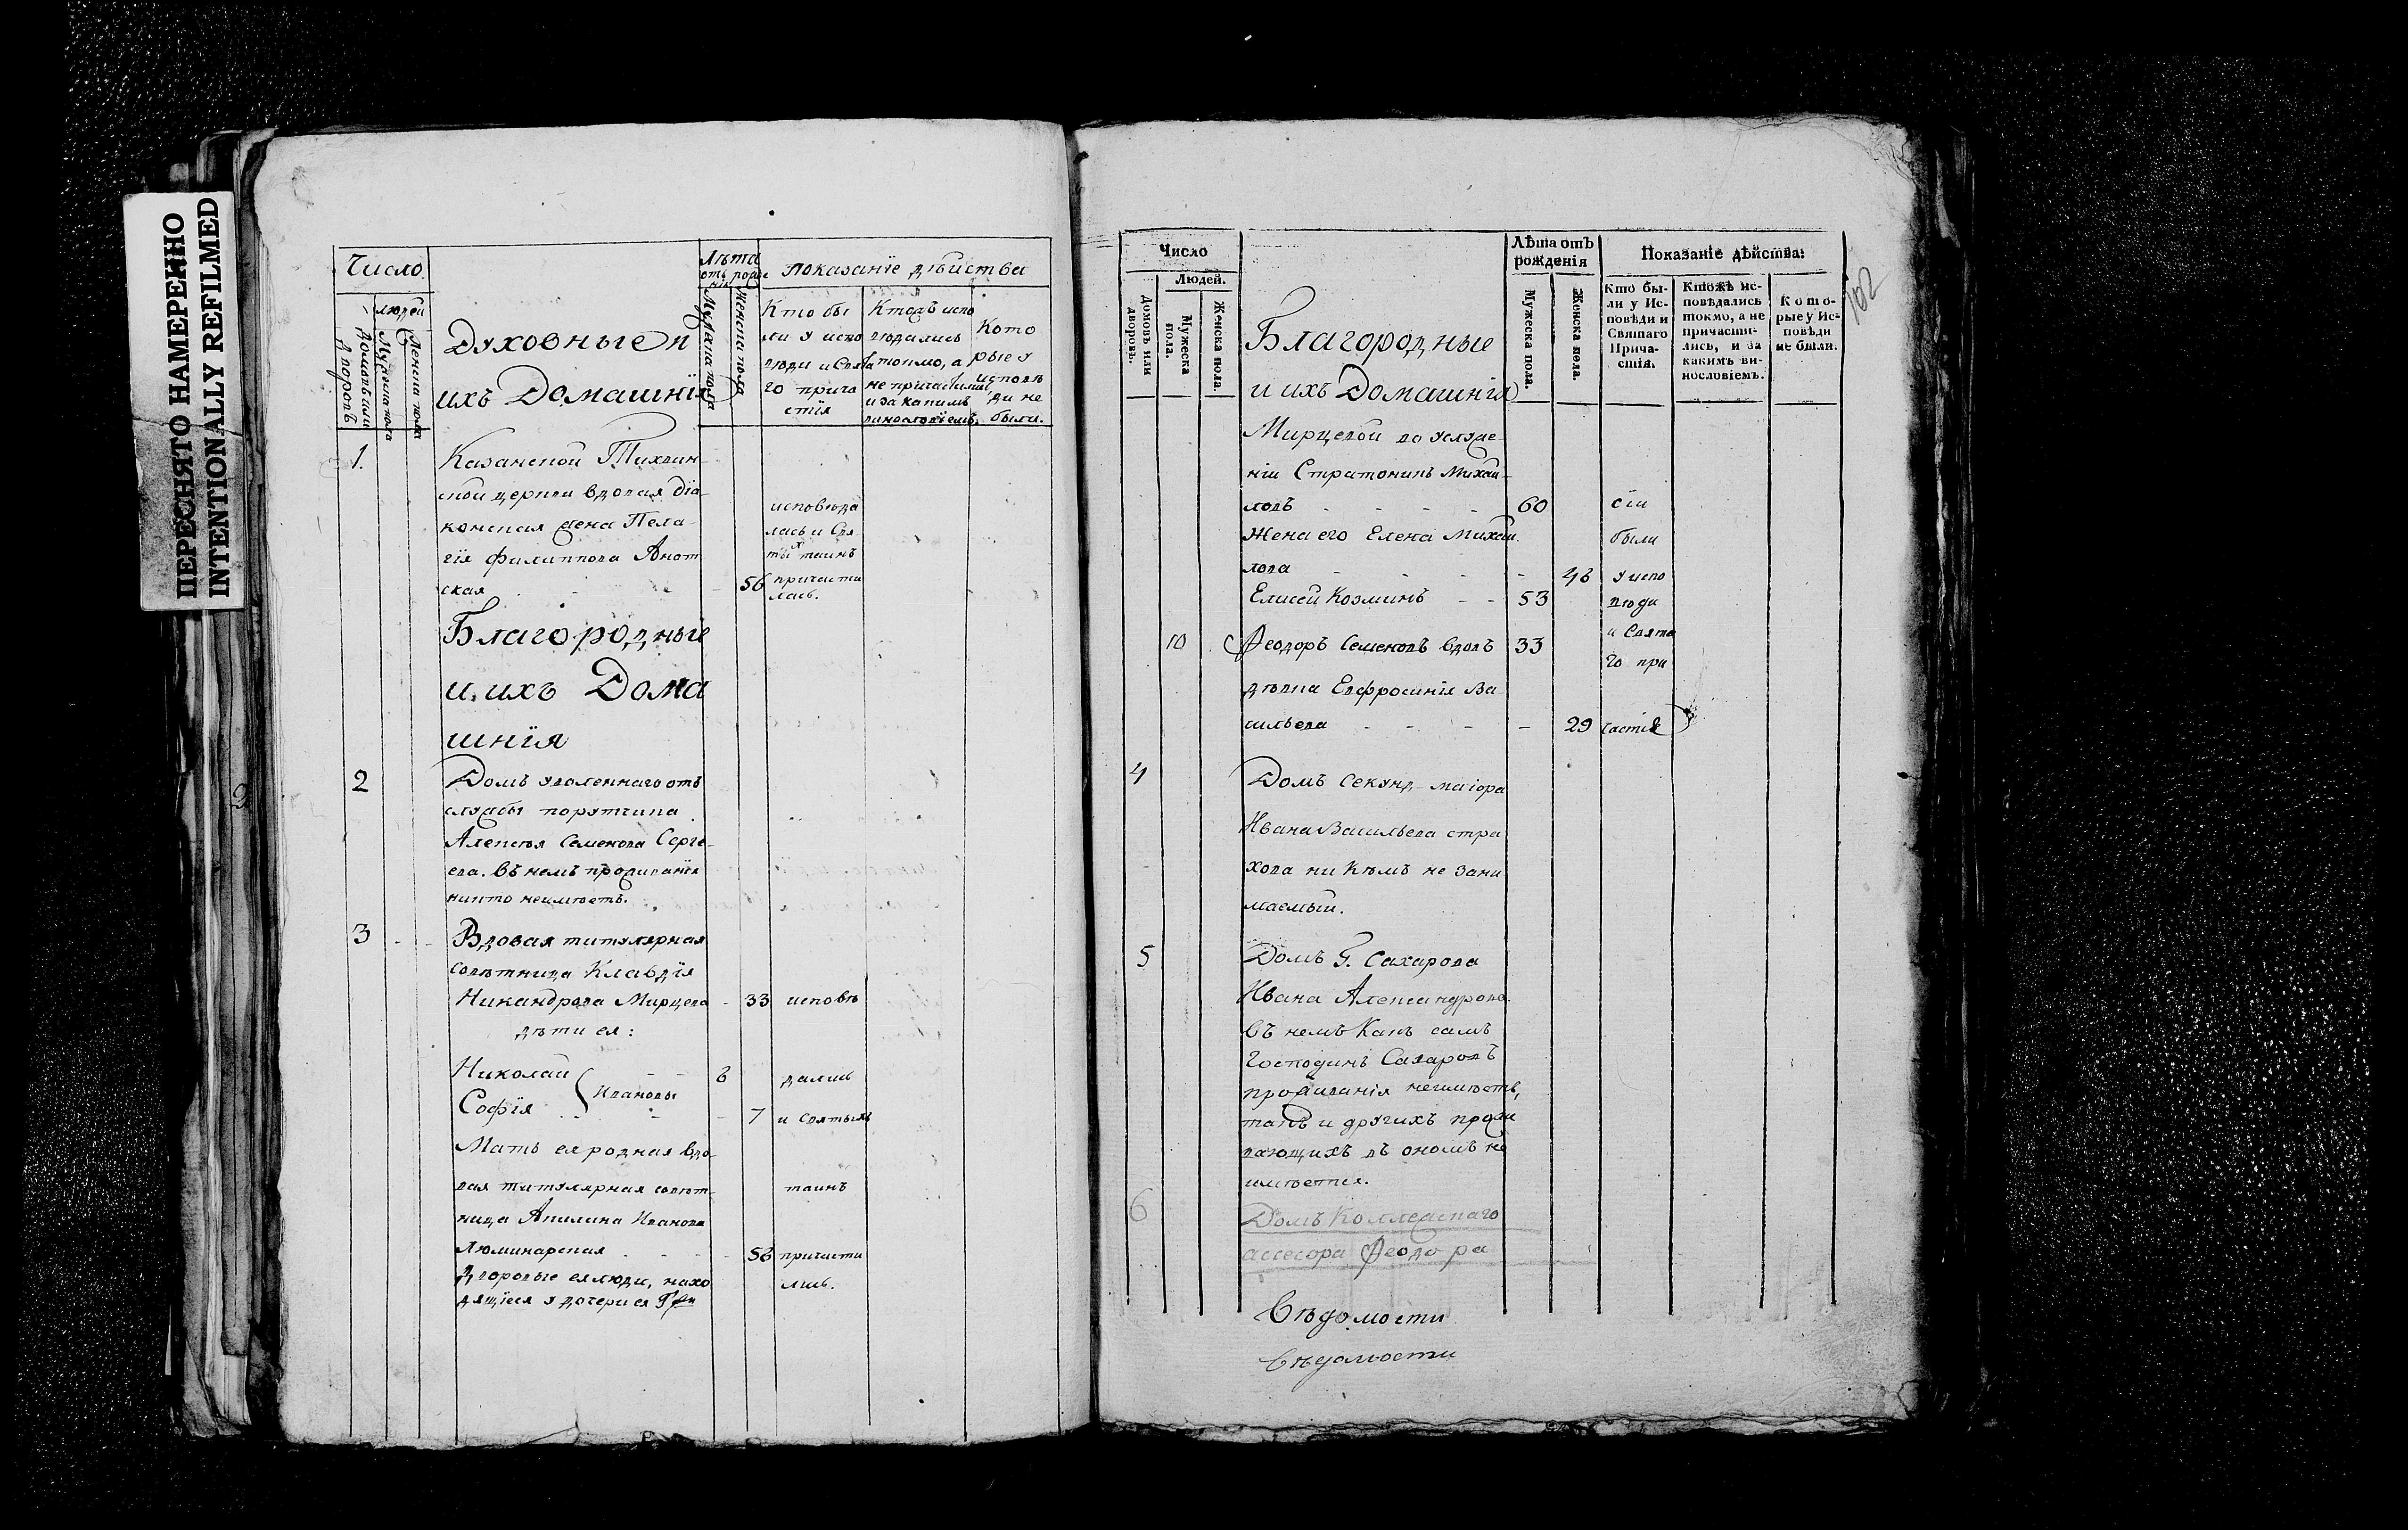 ПЕРЕСНЯТО НАМЕРЕННО
INTENTIONALLY REFILMED
Число.
людей
Домовъ или
дворовъ
Мужеска пола
Женска пола
Духовные и
ихъ Домашнія
Лѣта
отъ рожде
нія
Мужеска пола
Женска пола
показаніе дѣйства
Кто бы
ли у испо
вѣди и Свята
го прича
стія
Ктожъ испо
вѣдались
токмо, а
не причастились
и за какимъ
винословіемъ.
Кото
рые у
исповѣ
ди не
были.
1.
Казанской Тихвин-
ской церкви вдовая діа-
конская жена Пела-
гія Филиппова
ская
56
исповѣда
лась и Свя
тыхъ таинъ
причасти
лась.
Благородные
и ихъ Дома
шнія
2
Домъ уволеннаго отъ
службы порутчика
Алексѣя Семенова Серге-
ева. Въ немъ проживанія
никто неимѣетъ.
3
Вдовая титулярная
совѣтница Клавдія
Никандрова Мирцева
33
исповѣ
дѣти ея:
Николай
Софія
Ивановы
8
7
дались
и Святыхъ
Мать ея родная вдо-
вая титулярная совѣт-
ница Акилина Иванова
Люминарская
58
таинъ
причасти
лись.
Дворовые ея люди, нахо
дящіеся у дочери ея Г-жи
102
Число
Людей.
Домовъ или
дворовъ.
Мужеска
пола.
Женска пола.
Благородные
и ихъ Домашнія
Лѣта отъ
рожденія
Мужеска пола.
Женска пола.
Показаніе дѣйства:
Кто бы-
ли у Ис-
повѣди и
Святаго
Прича-
стія.
Ктожъ ис-
повѣдались
токмо, а не
причасти-
лись, и за
какимъ ви-
нословіемъ.
Кото-
рые у Ис-
повѣди
не были.
Мирцевой во услуже-
ніи Стратоникъ Михай-
ловъ
60
сіи
Жена его Елена Михай-
были
лова
48
у испо
Елисей Козминъ
53
вѣди
и Свята
10
Феодоръ Семеновъ вдовъ
33
го при
дѣвка Евфросинія Ва-
сильева
29
частія
4
Домъ Секунд-маіора
Ивана Васильева стра
хова ни кѣмъ не зани
маемый.
5
Домъ Г. Сахарова
Ивана Александрова.
Въ немъ какъ самъ
Господинъ Сахаровъ
проживанія неимѣетъ,
такъ и другихъ прожи
вающихъ въ ономъ не
имѣется.
6
Домъ Коллежскаго
ассесора Феодора
Вѣдомости
Вѣдомости